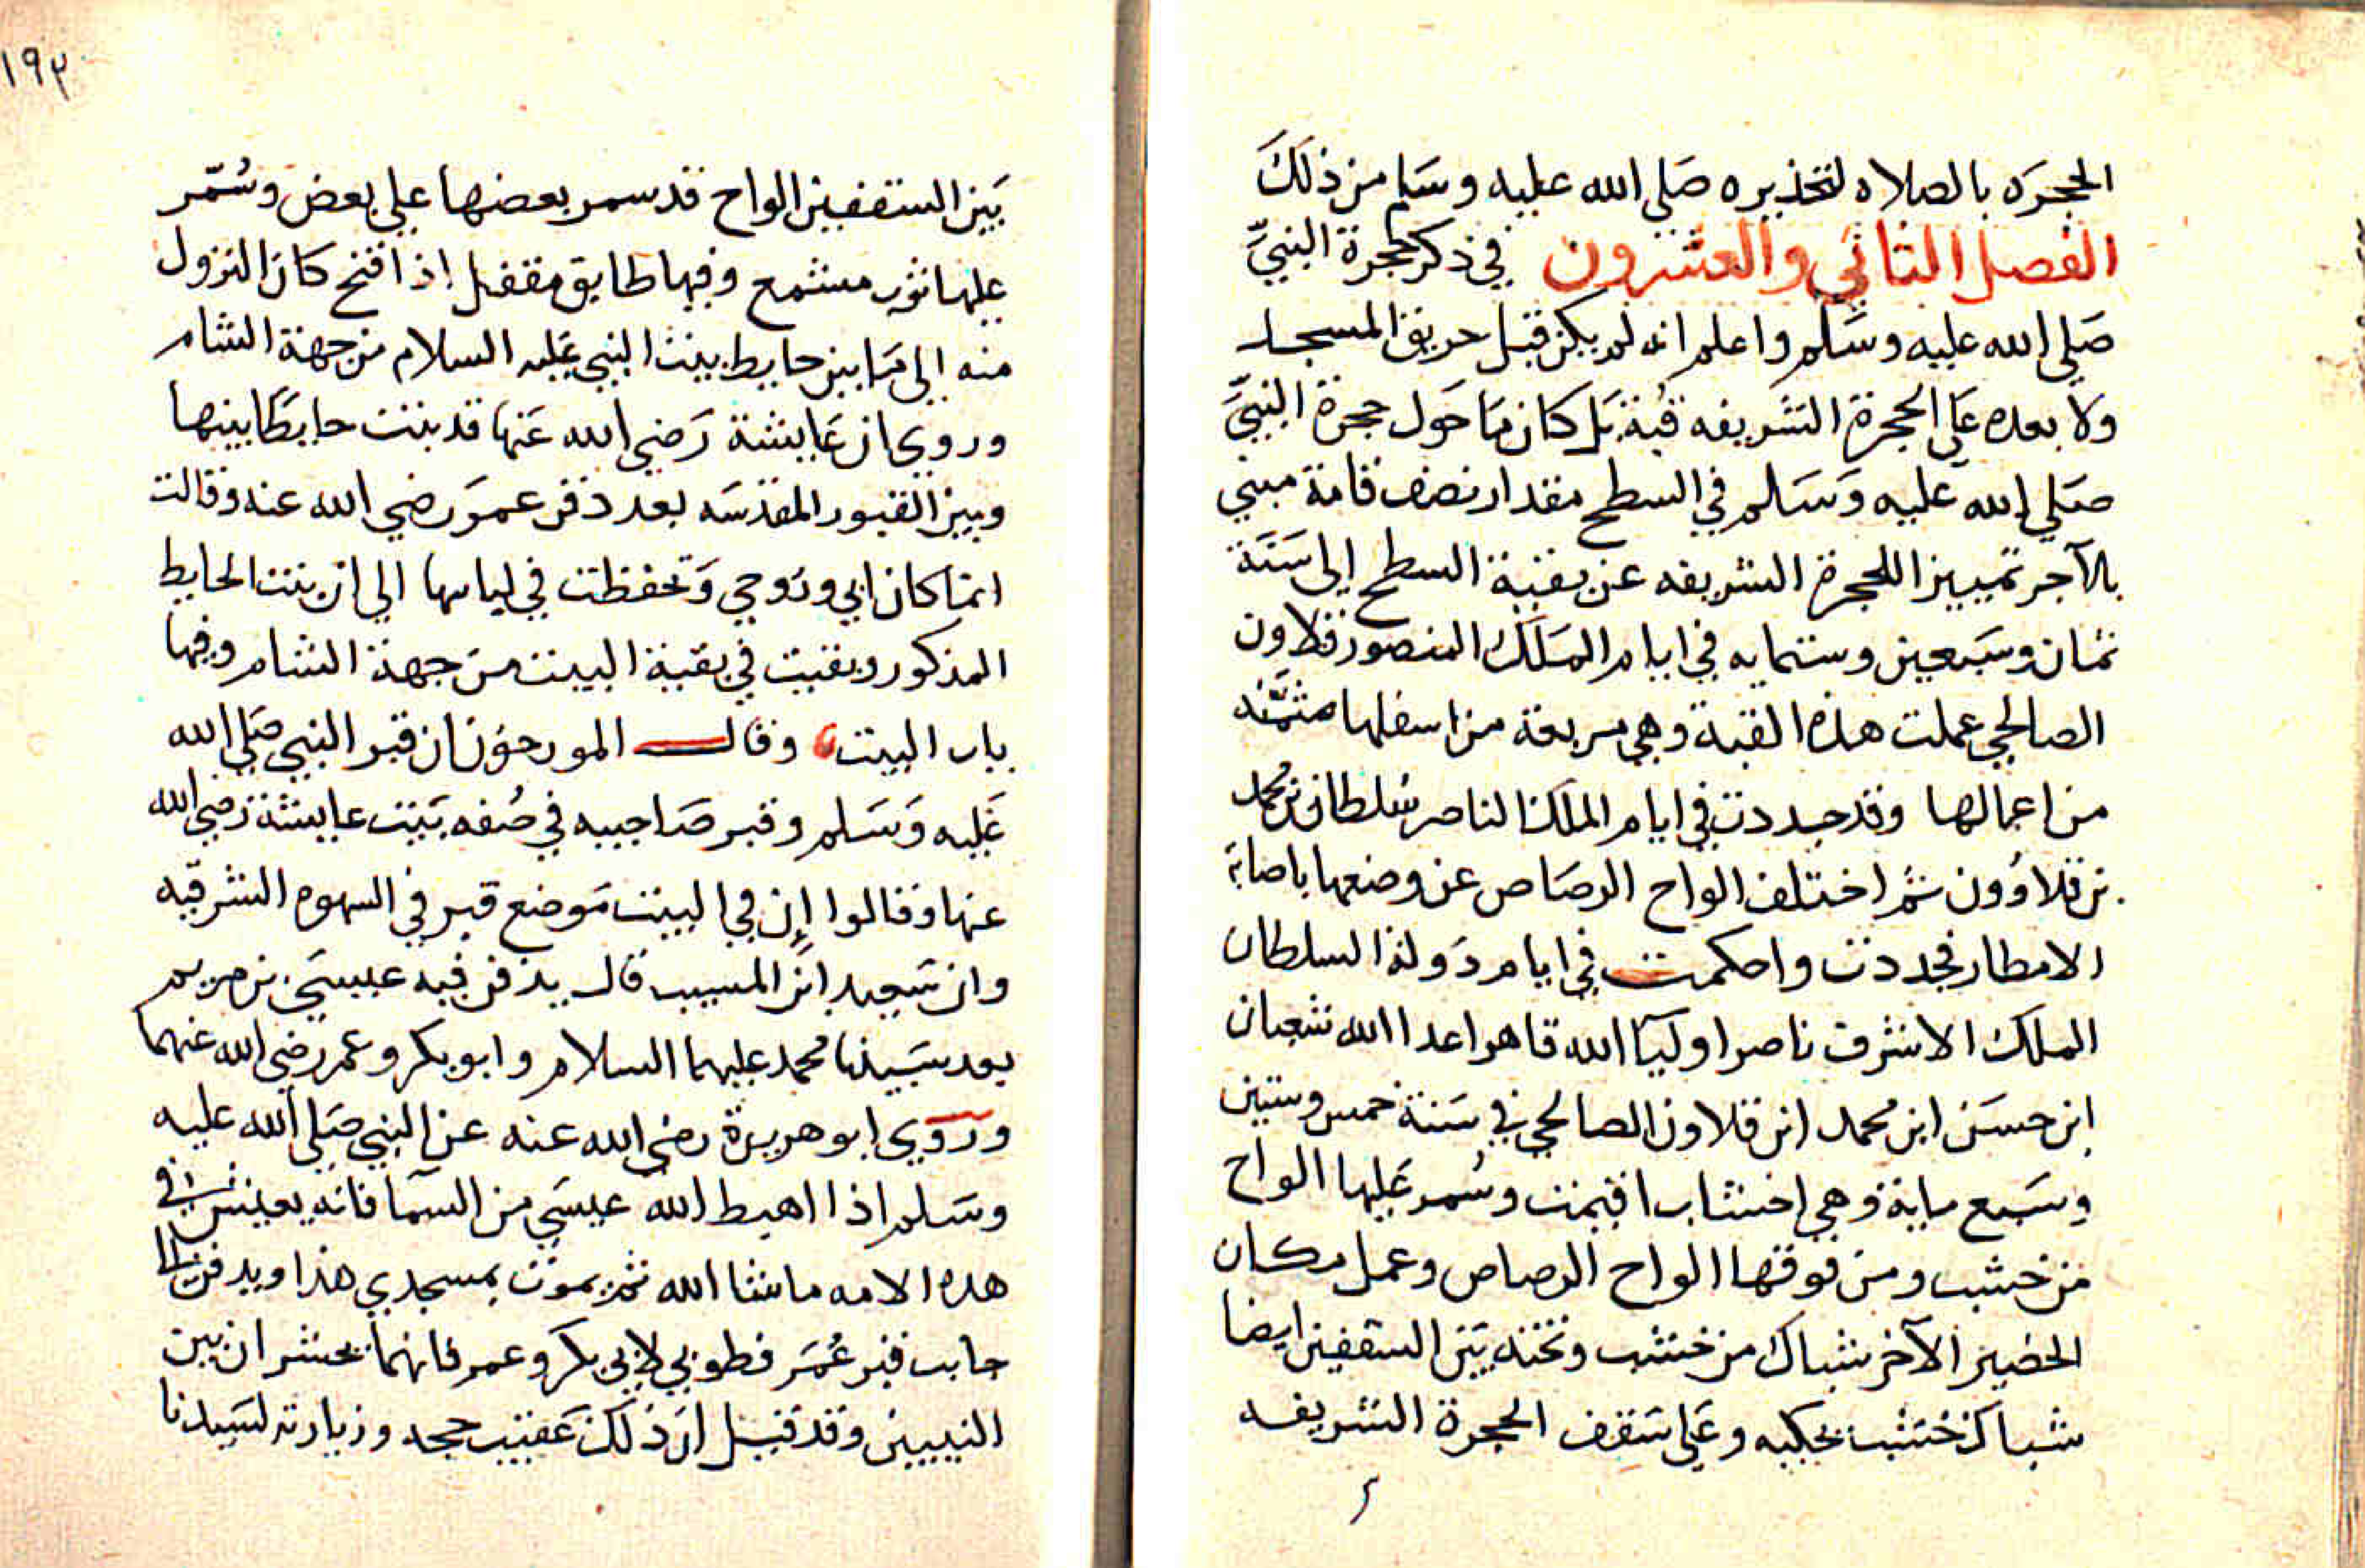 الحجرة بالصلاه لتحذيره صلى الله عليه وسلم من ذلك
الفصل الثاني والعشرون في ذكر حجرة النبي
صلي الله عليه وسلم واعلم انه لم يكن قبل حريق المسجد
ولا بعده على الحجرة الشريفه قبة بل كان ما حول حجرة النبي
صلي الله عليه وسلم في السطح مقدار نصف قامة مبني
بالآجر تمييزا للحجرة الشريفه عن بقية السطح الى سنة
ثمان وسبعين وستمايه في ايام الملك المنصور قلاون
الصالحي عملت هذه القبة وهي مربعة من اسفلها مثمنه
من اعمالها وقد جددت في ايام الملك الناصر سلطان بن محمد
بن قلاوون ثم اختلف الواح الرصاص عن وضعها باصابة
الامطار فجددت واحكمت في ايام دولة السلطان
الملك الاشرف ناصر اوليآ الله قاهر اعدا الله شعبان
ابن حسن ابن محمد ابن قلاون الصالحي في سنة خمس وستين
وسبع ماية وهي اخشاب اقيمت وسمر عليها الواح
من خشب ومن فوقها الواح الرصاص وعمل مكان
الحضير الآخر شباك من خشب وتحته بين السقفين ايضا
شباك خشب يحكيه وعلى سقف الحجرة الشريفه
١٩٣
بين السقفين الواح قد سمر بعضها علي بعض وسُمّر
عليها ثوب مشمع وفيها طابق مقفل اذا فتح كان النزول
منه الى ما بين حايط بيت النبي عليه السلام من جهة الشام
وروي ان عايشة رضي الله عنها قد بنت حايطا بينها
وبين القبور المقدسه بعد دفن عمر رضي الله عنه وقالت
انما كان ابي وزوجي وتحفظت في لباسها الي ان بنت الحايط
المذكور وبقيت في بقية البيت من جهة الشام وفيها
باب البيت وقال المورخون ان قبر النبي صلي الله
عليه وسلم وقبر صاحبيه في صُفه بيت عايشة رضي الله
عنها وقالوا إن في البيت موضع قبر في السهوه الشرقيه
وان سعيد ابن المسيب قال يدفن فيه عيسي بن مريم
بعد سيدنا محمد عليهما السلام وابو بكر وعمر رضي الله عنهما
وروي ابو هريرة رضي الله عنه عن النبي صلي الله عليه
وسلم اذا اهبط الله عيسي من السما فانه يعيش في
هذه الامه ما شا الله ثم يموت بمسجدي هذا ويدفن الى
جانب قبر عُمَر فطوبي لابي بكر وعمر فانهما يحشران بين
النبيين وقد قيل ان ذلك عقيب حجه وزيارته لسيدنا